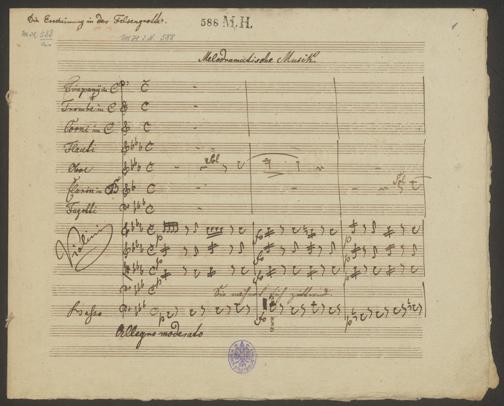 Die Erscheinung in der Felsengrotte.
588 M.H.
1
M.H. 588
M.H.I.N. 588
Melodramatische Musik.
Timpany in C
Trombe in C
Corni in C
Flauti
Oboe
Sol
Clarin in B
Sol
Fagotti
Violini
Basso
Allegro moderato